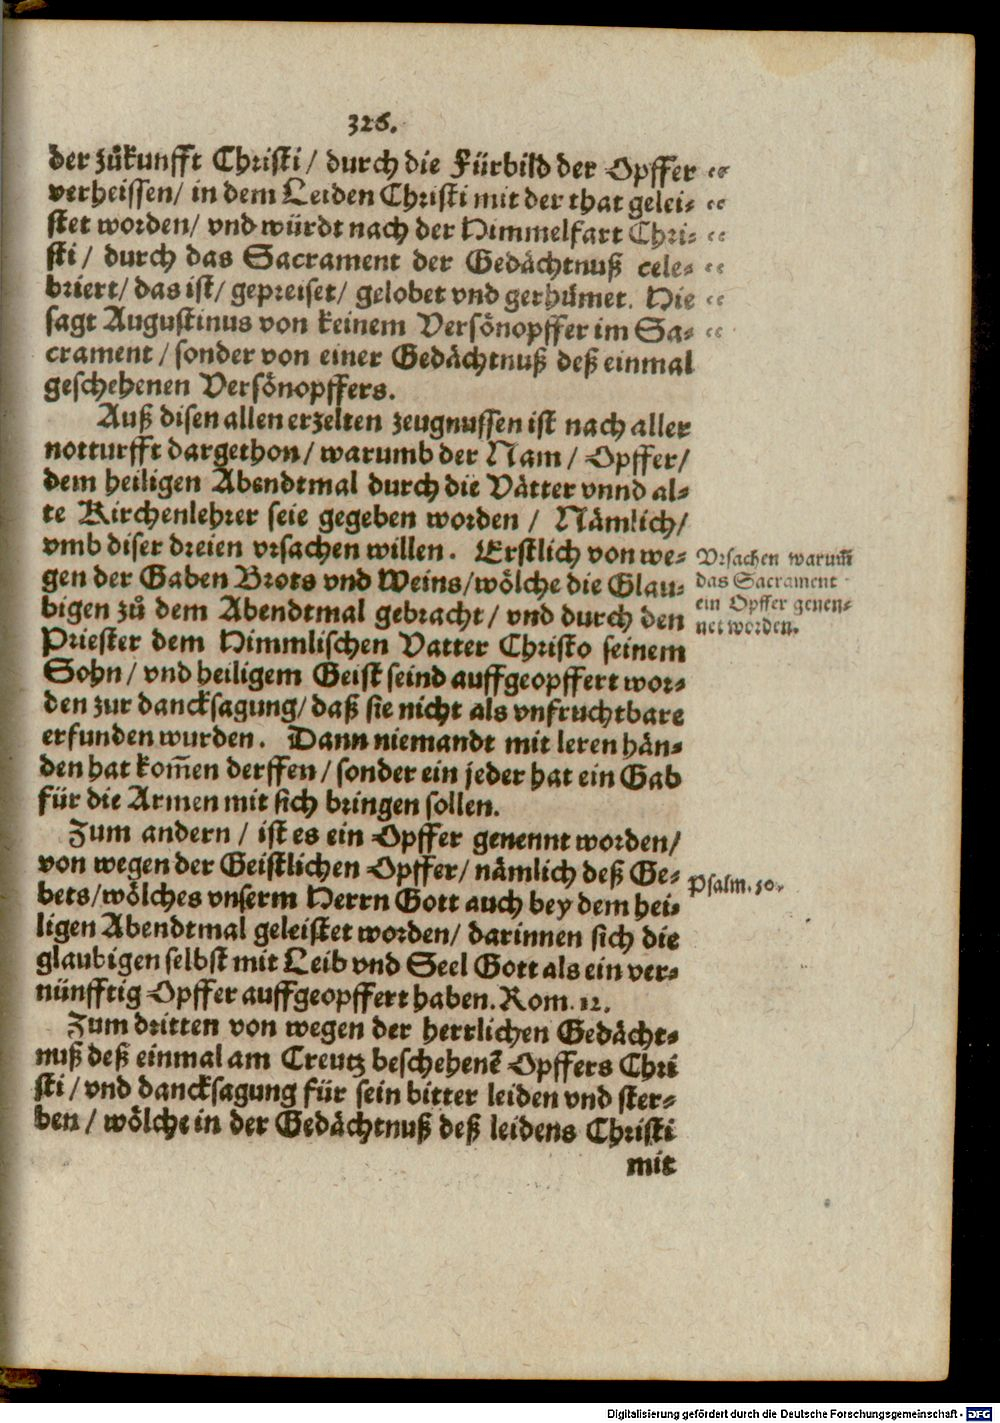 326.
der zůkunfft Christi / durch die Fürbild der Opffer
verheissen / in dem Leiden Christi mit der that gelei-
stet worden / vnd würdt nach der Himmelfart Chri-
sti / durch das Sacrament der Gedächtnuß cele-
briert / das ist / gepreiset / gelobet vnd gerhümet. Hie
sagt Augustinus von keinem Versönopffer im Sa-
crament / sonder von einer Gedächtnuß deß einmal
geschehenen Versönopffers.
Auß disen allen erzelten zeugnussen ist nach aller
notturfft dargethon / warumb der Nam / Opffer /
dem heiligen Abendtmal durch die Vätter vnnd al-
te Kirchenlehrer seie gegeben worden / Nämlich /
vmb diser dreien vrsachen willen. Erstlich von we-
gen der Gaben Brots vnd Weins / wölche die Glau-
bigen zů dem Abendtmal gebracht / vnd durch den
Priester dem Himmlischen Vatter Christo seinem
Sohn / vnd heiligem Geist seind auffgeopffert wor-
den zur dancksagung / daß sie nicht als vnfruchtbare
erfunden wurden. Dann niemandt mit leren hän-
den hat kom̃en derffen / sonder ein jeder hat ein Gab
für die Armen mit sich bringen sollen.
Vrsachen warum̃
das Sacrament
ein Opffer genen-
net worden.
Zum andern / ist es ein Opffer genennt worden /
von wegen der Geistlichen Opffer / nämlich deß Ge-
bets / wölches vnserm Herrn Gott auch bey dem hei-
ligen Abendtmal geleistet worden / darinnen sich die
glaubigen selbst mit Leib vnd Seel Gott als ein ver-
nünfftig Opffer auffgeopffert haben. Rom. 12.
Psalm. 50.
Zum dritten von wegen der herrlichen Gedächt-
nuß deß einmal am Creutz beschehenẽ Opffers Chri
sti / vnd dancksagung für sein bitter leiden vnd ster-
ben / wölche in der Gedächtnuß deß leidens Christi
mit
Digitalisierung gefördert durch die Deutsche Forschungsgemeinschaft - DFG